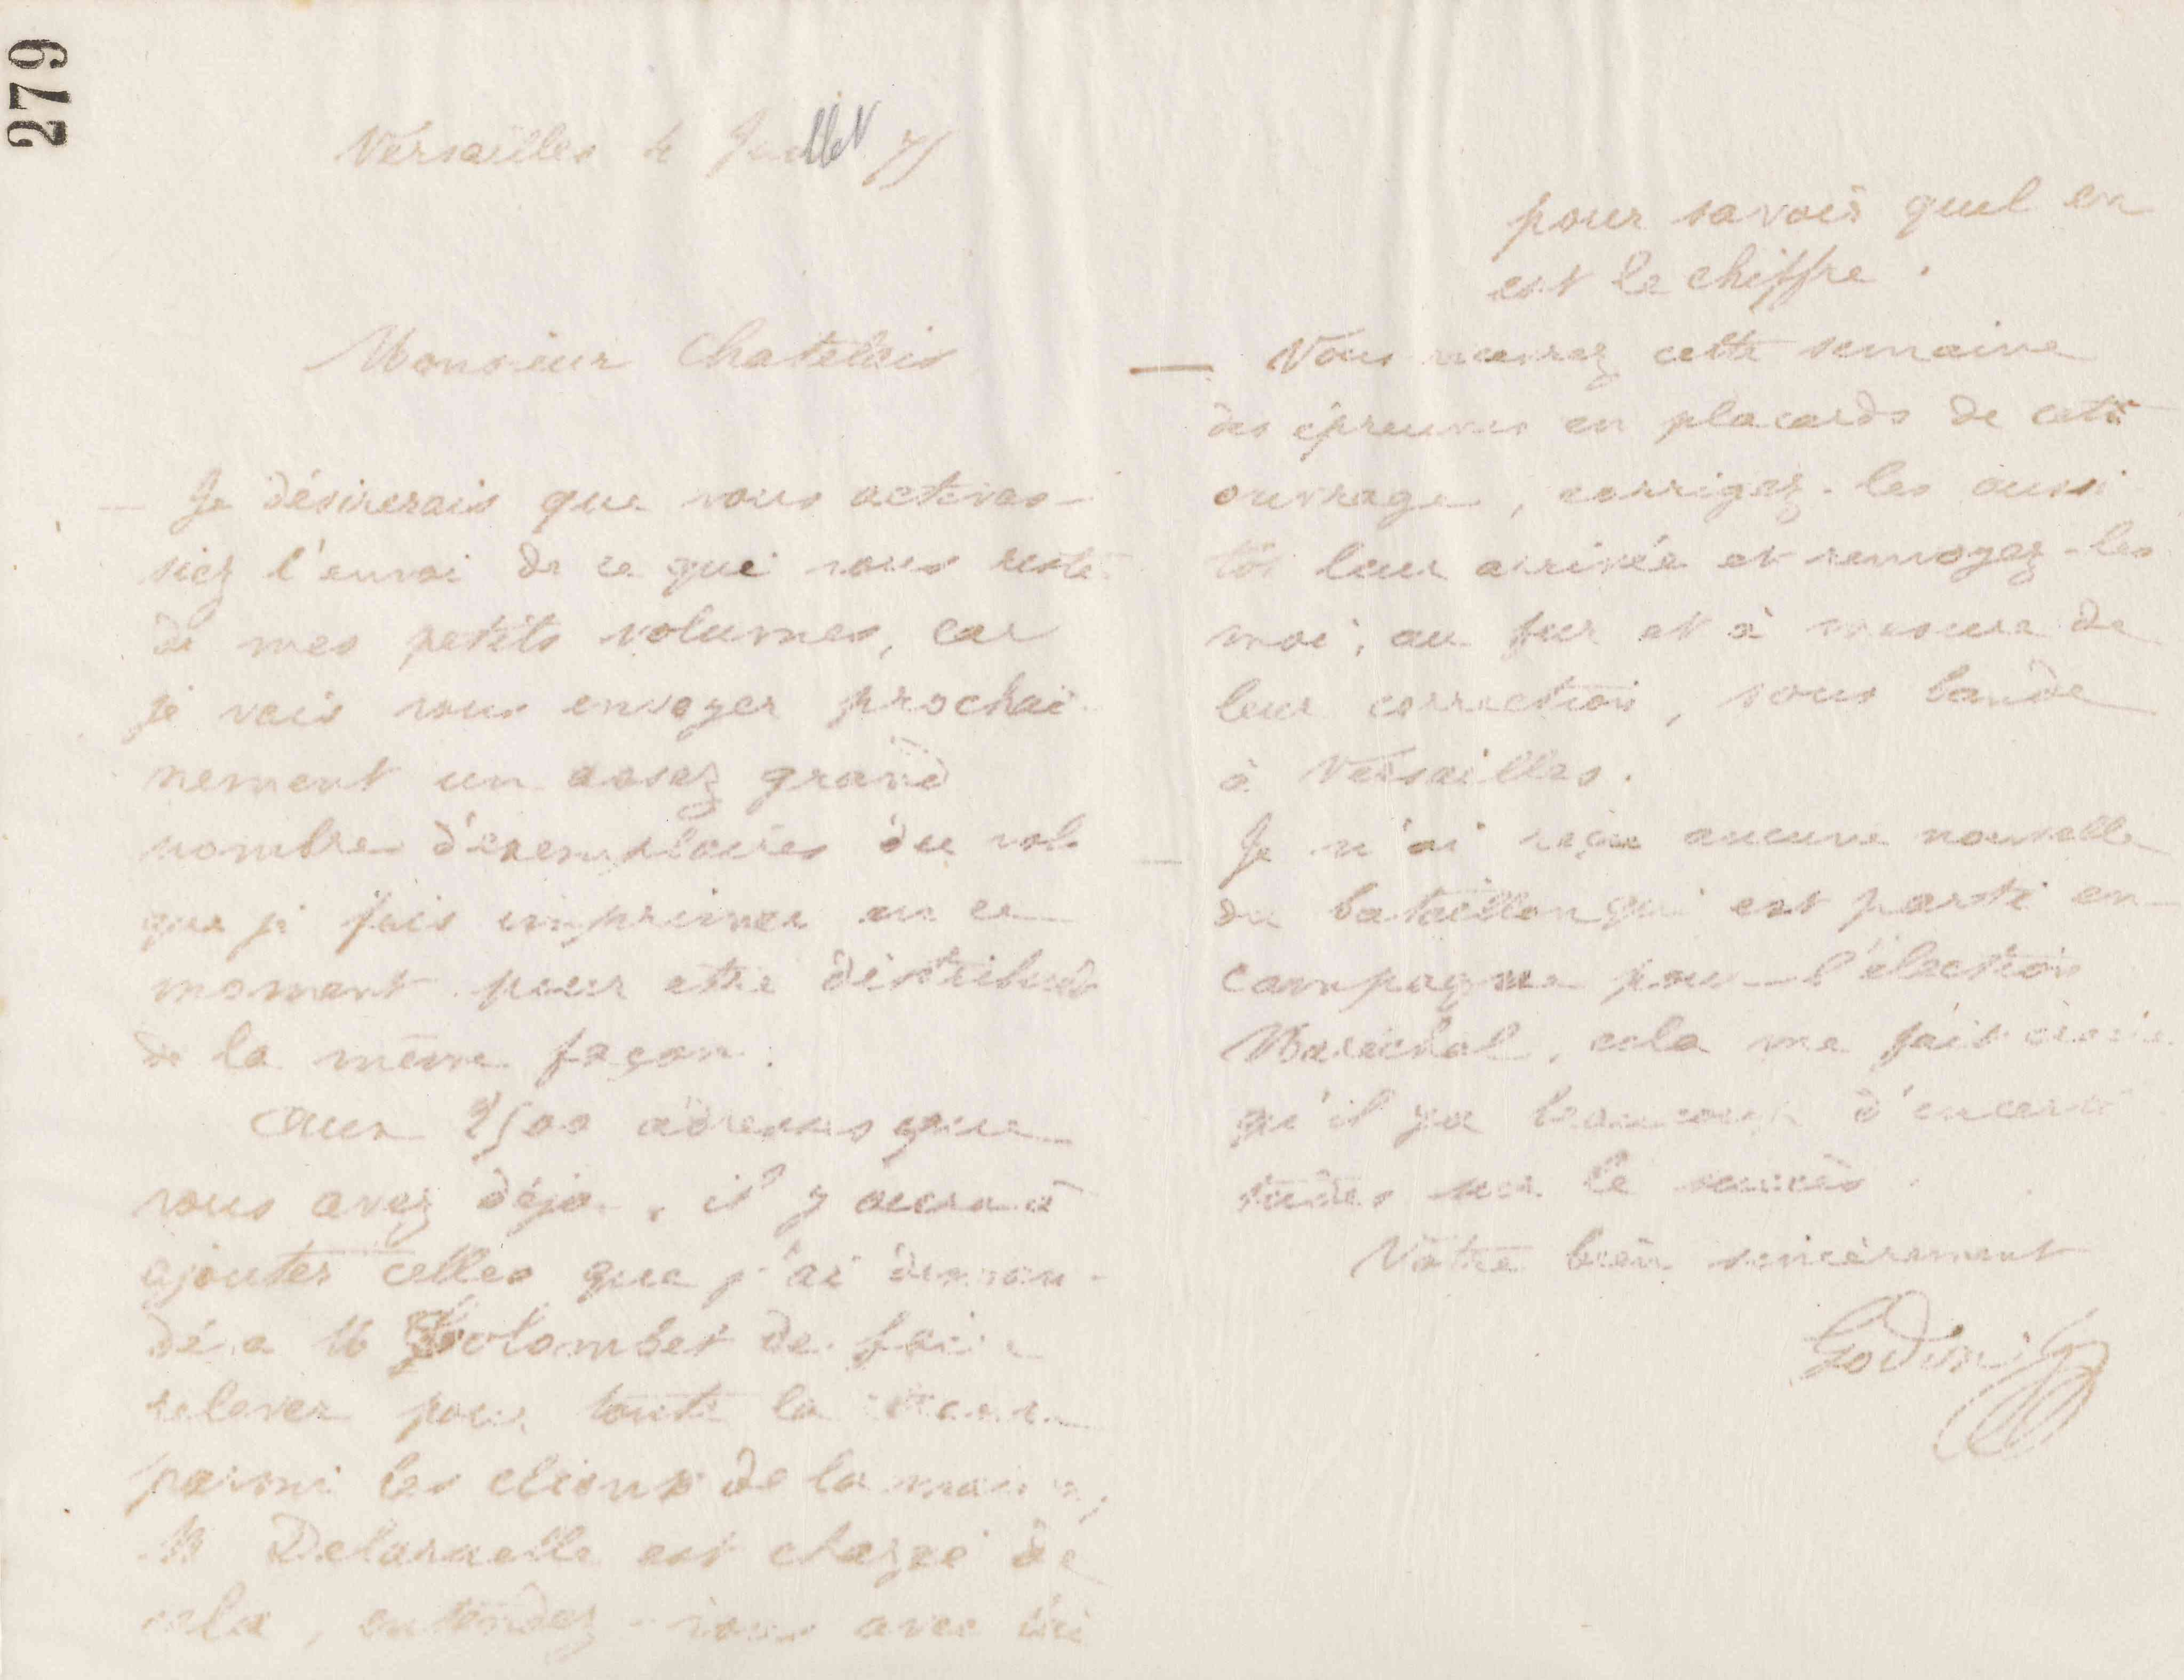 279
Versailles 4 Juillet 75
Monsieur Chatelais
— Je désirerais que vous activas-
siez l'envoi de ce qui vous reste
de mes petits volumes, car
je vais vous envoyer prochai-
nement un assez grand
nombre d'exemplaires du vol.
que je fais imprimer en ce
moment pour être distribués
de la même façon.
Aux 2500 adresses que
vous avez déjà, il y aura à
ajouter celles que j'ai deman-
dé a M Colombet de faire
relever pour toute la
parmi les clients de la maison,
M Delaruelle est chargé de
cela, entendez-vous avec lui
pour savoir quel en
est le chiffre.
— Vous recevrez cette semaine
des épreuves en placards de cet
ouvrage, corrigez-les aussi
tôt leur arrivée et renvoyez-les
moi, au fur et à mesure de
leur correction, sous bande
à Versailles.
— Je n'ai reçu aucune nouvelle
du bataillon qui est parti en
campagne pour l'élection
Maréchal, cela me fait croire
qu'il y a beaucoup d'incerti
tudes sur le succès.
Votre bien sincèrement
Godin